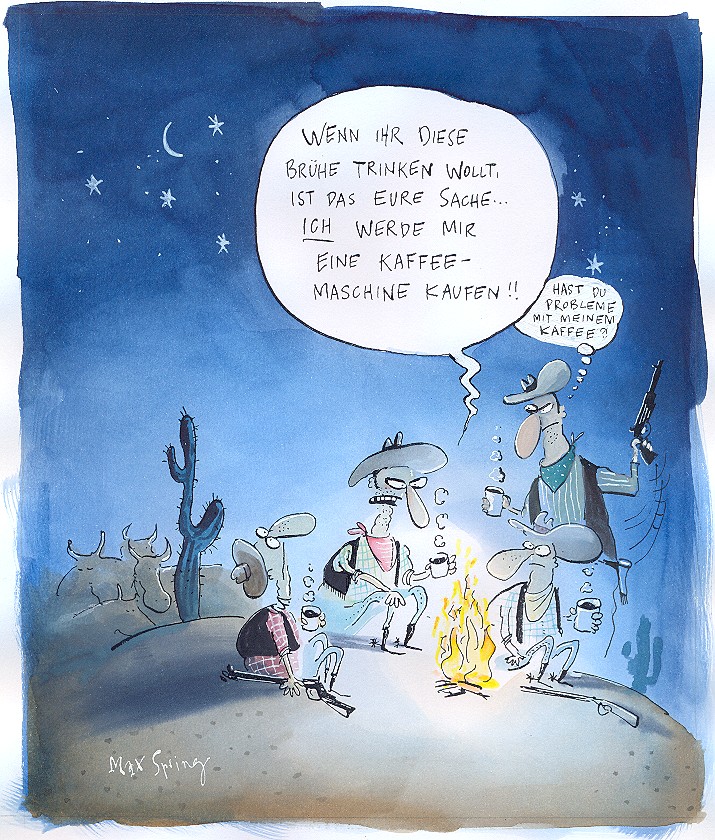 WENN IHR DIESE
BRÜHE TRINKEN WOLLT,
IST DAS EURE SACHE...
ICH WERDE MIR
EINE KAFFEE-
MASCHINE KAUFEN!!
HAST DU
PROBLEME
MIT MEINEM
KAFFEE?
Max Spring